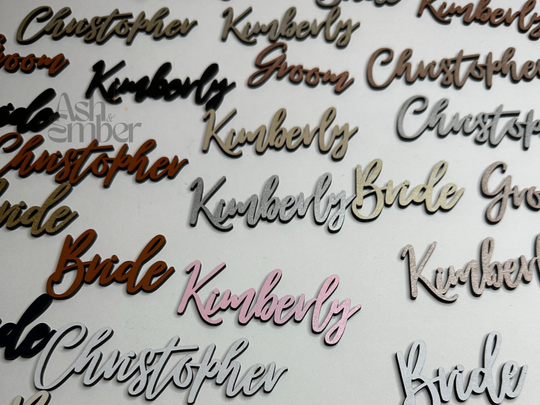 Christopher Kimberly Kimberly
Groom Kimberly Groom Christopher
Bride Ash & Ember Kimberly Christopher
Christopher
Bride Kimberly Bride Groom
Bride Kimberly Kimberly
Christopher Bride